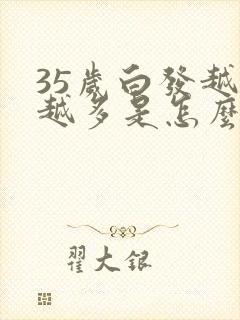 35歲白發越
越多是怎麼
翟大銀